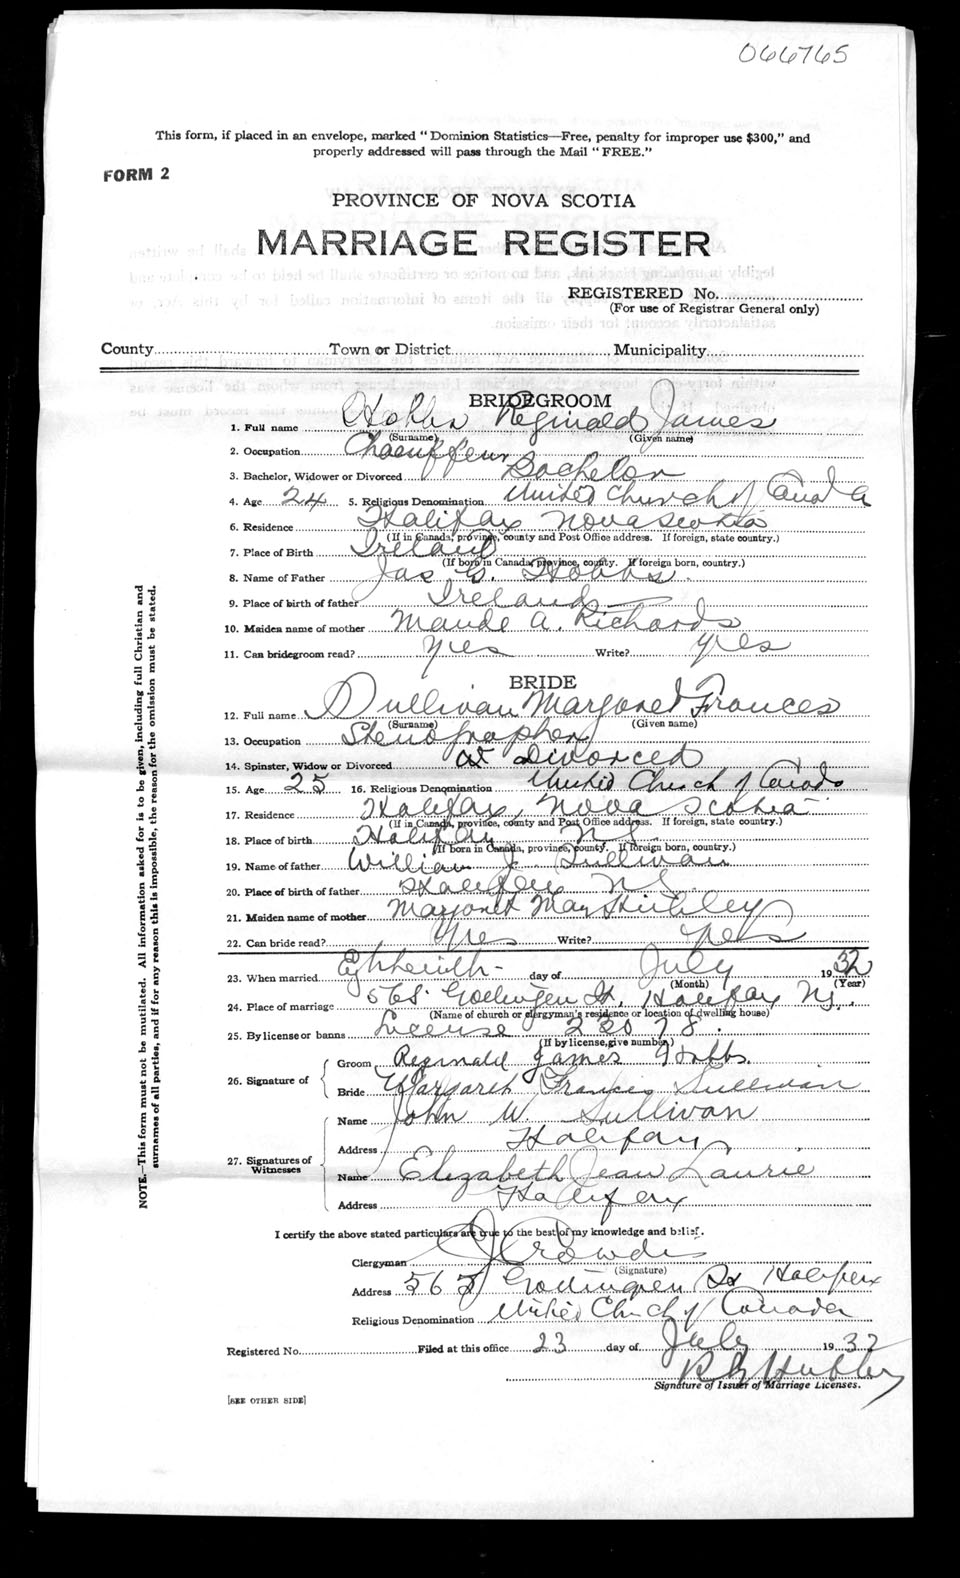 066765
This form, if placed in an envelope, marked "Dominion Statistics—Free, penalty for improper use $300," and
properly addressed will pass through the Mail "FREE."
FORM 2
PROVINCE OF NOVA SCOTIA
MARRIAGE REGISTER
REGISTERED No.
(For use of Registrar General only)
County Town or District Municipality
BRIDEGROOM
1. Full name Hobbs Reginald James
(Surname) (Given name)
2. Occupation Chauffeur
3. Bachelor, Widower or Divorced Bachelor
4. Age 24 5. Religious Denomination United Church of Canada
6. Residence Halifax Nova Scotia
(If in Canada, province, county and Post Office address. If foreign, state country.)
7. Place of Birth Ireland
(If born in Canada, province, county. If foreign born, country.)
8. Name of Father Jas G. Hobbs
9. Place of birth of father Ireland
10. Maiden name of mother Maude A. Richards
11. Can bridegroom read? Yes Write? Yes
BRIDE
12. Full name Sullivan Margaret Frances
(Surname) (Given name)
13. Occupation Stenographer
14. Spinster, Widow or Divorced Divorced
15. Age 25 16. Religious Denomination United Church of Canada
17. Residence Halifax, Nova Scotia
(If in Canada, province, county and Post Office address. If foreign, state country.)
18. Place of birth Halifax N S
(If born in Canada, province, county. If foreign born, country.)
19. Name of father William J. Sullivan
20. Place of birth of father Halifax N S.
21. Maiden name of mother Margaret May
22. Can bride read? Yes Write? Yes
23. When married day of July 1932
(Month) (Year)
24. Place of marriage Gottingen St. Halifax N S.
(Name of church or clergyman's residence or location of dwelling house)
25. By license or banns License 22078.
(If by license, give number)
26. Signature of
Groom Reginald James Hobbs.
Bride Margaret Francis Sullivan
27. Signatures of Witnesses
Name John W. Sullivan
Address Halifax
Name Elizabeth Jean Laurie
Address Halifax
I certify the above stated particulars are true to the best of my knowledge and belief.
Clergyman
(Signature)
Address 565 Gottingen St Halifax
Religious Denomination United Church of Canada
Registered No. Filed at this office 23 day of July 1932
Signature of Issuer of Marriage Licenses.
[SEE OTHER SIDE]
NOTE.—This form must not be mutilated. All information asked for is to be given, including full Christian and
surnames of all parties, and if for any reason this is impossible, the reason for the omission must be stated.